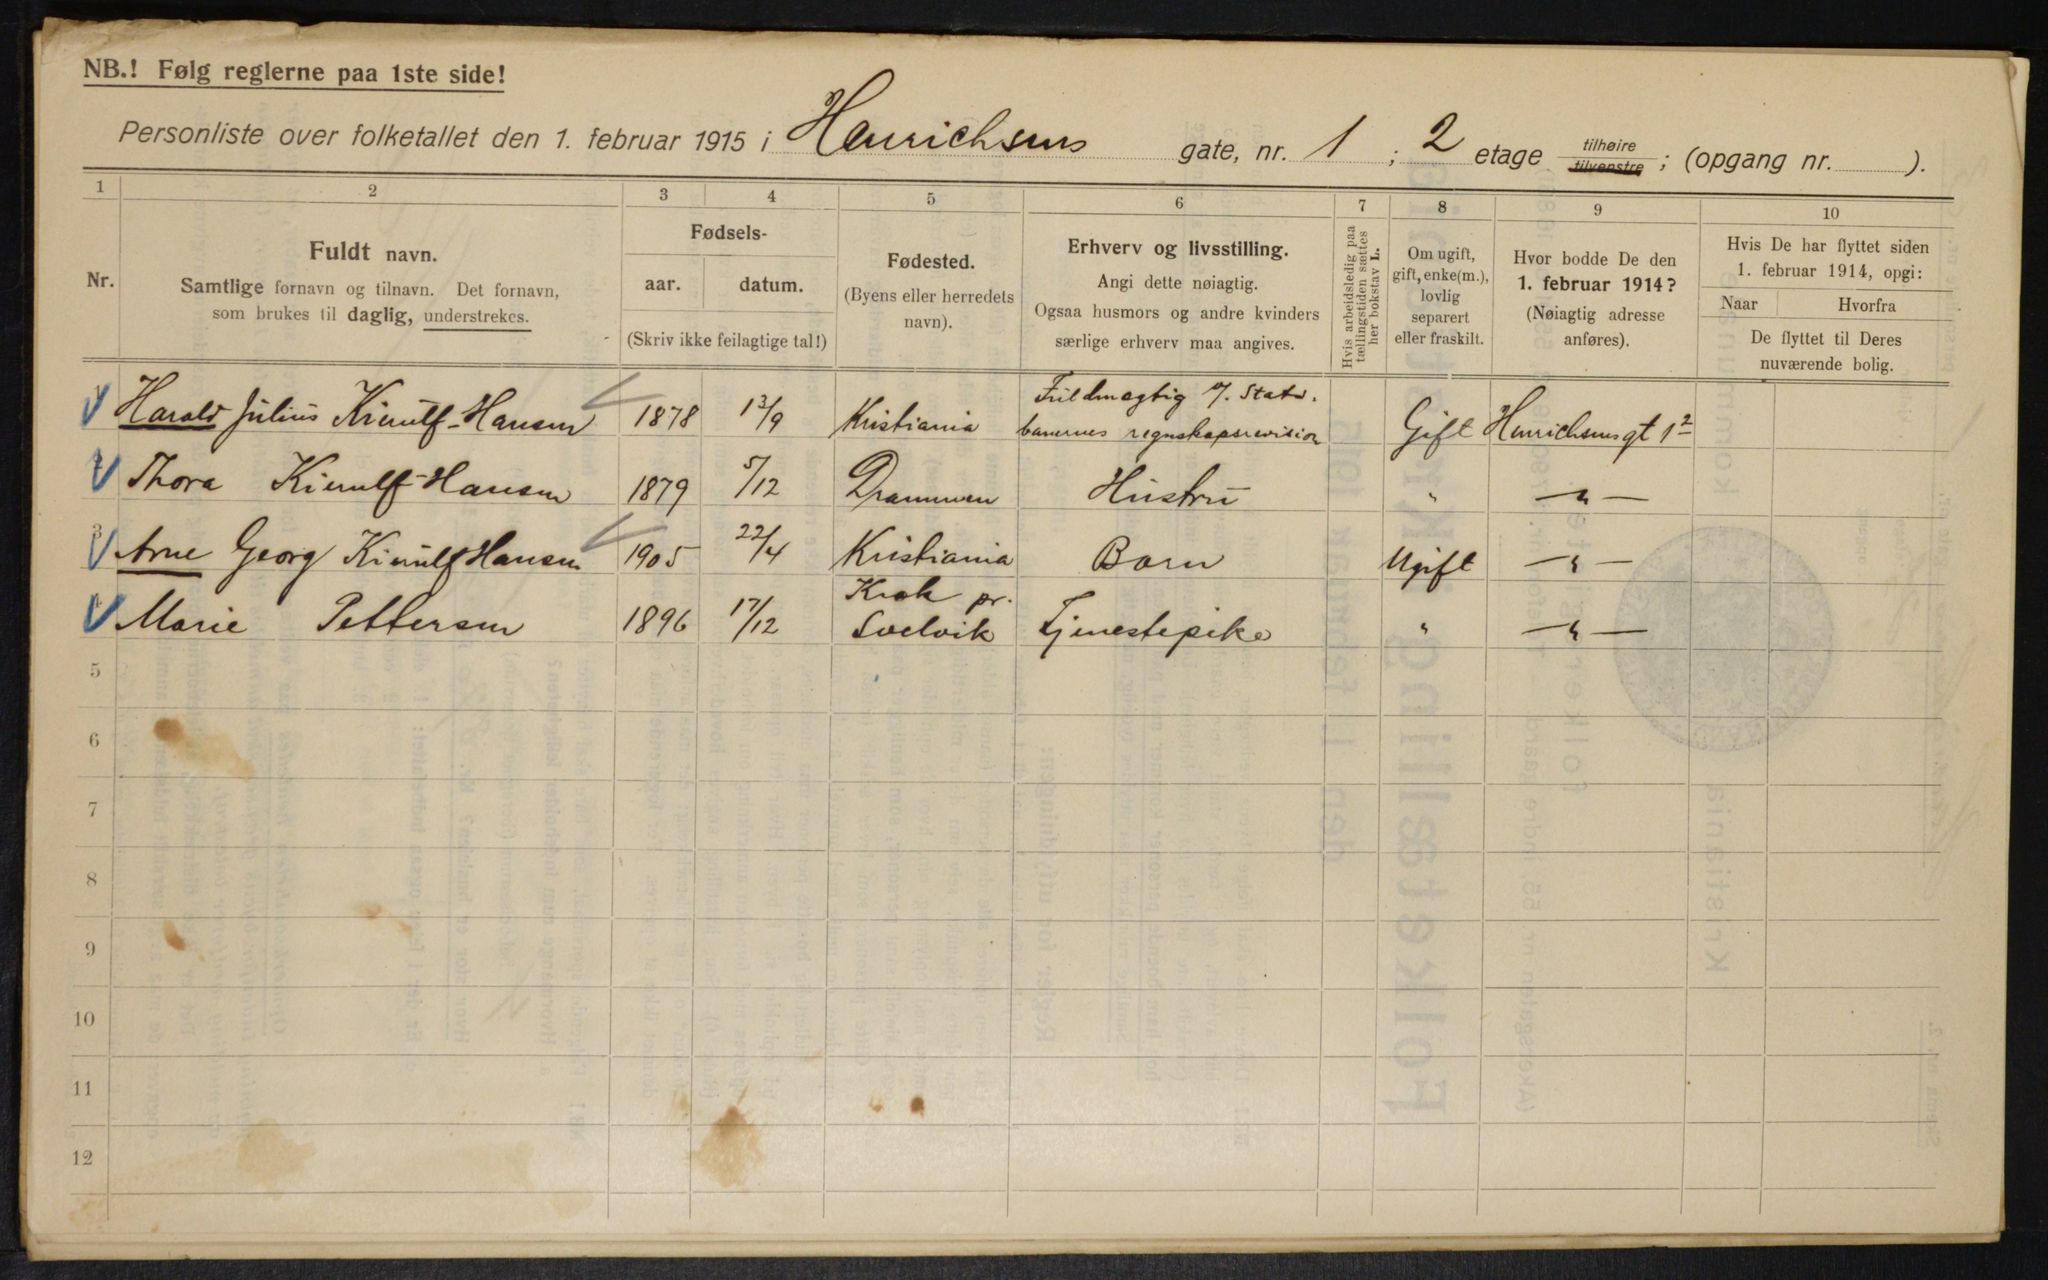 NB.! Følg reglerne paa 1ste side!
Personliste over folketallet den 1. februar 1915 i Henrichsens gate, nr. 1 ; 2 etage tilhøire tilvenstre ; (opgang nr. ).
1 2 3 4 5 6 7 8 9 10
Nr.
Fuldt navn.
Samtlige fornavn og tilnavn. Det fornavn,
som brukes til daglig, understrekes.
Fødsels-
aar. datum.
(Skriv ikke feilagtige tal!)
Fødested.
(Byens eller herredets
navn).
Erhverv og livsstilling.
Angi dette nøiagtig.
Ogsaa husmors og andre kvinders
særlige erhverv maa angives.
Hvis arbeidsledig paa
tællingstiden sættes
her bokstav L.
Om ugift,
gift, enke(m.),
lovlig
separert
eller fraskilt.
Hvor bodde De den
1. februar 1914?
(Nøiagtig adresse
anføres).
Hvis De har flyttet siden
1. februar 1914, opgi:
Naar Hvorfra
De flyttet til Deres
nuværende bolig.
1 Harald Julius Kierulf-Hansen 1878 13/9 Kristiania Fuldmægtig v/. Stats.banernes regnskapsrevision Gift Henrichsensgt 1²
2 Thora Kierulf-Hansen 1879 5/12 Drammen Hustru " — " —
3 Arne Georg Kierulf Hansen 1905 22/4 Kristiania Barn Ugift — " —
4 Marie Pettersen 1896 17/12 Krok pr. Svelvik Tjenestepike " — " —
5
6
7
8
9
10
11
12